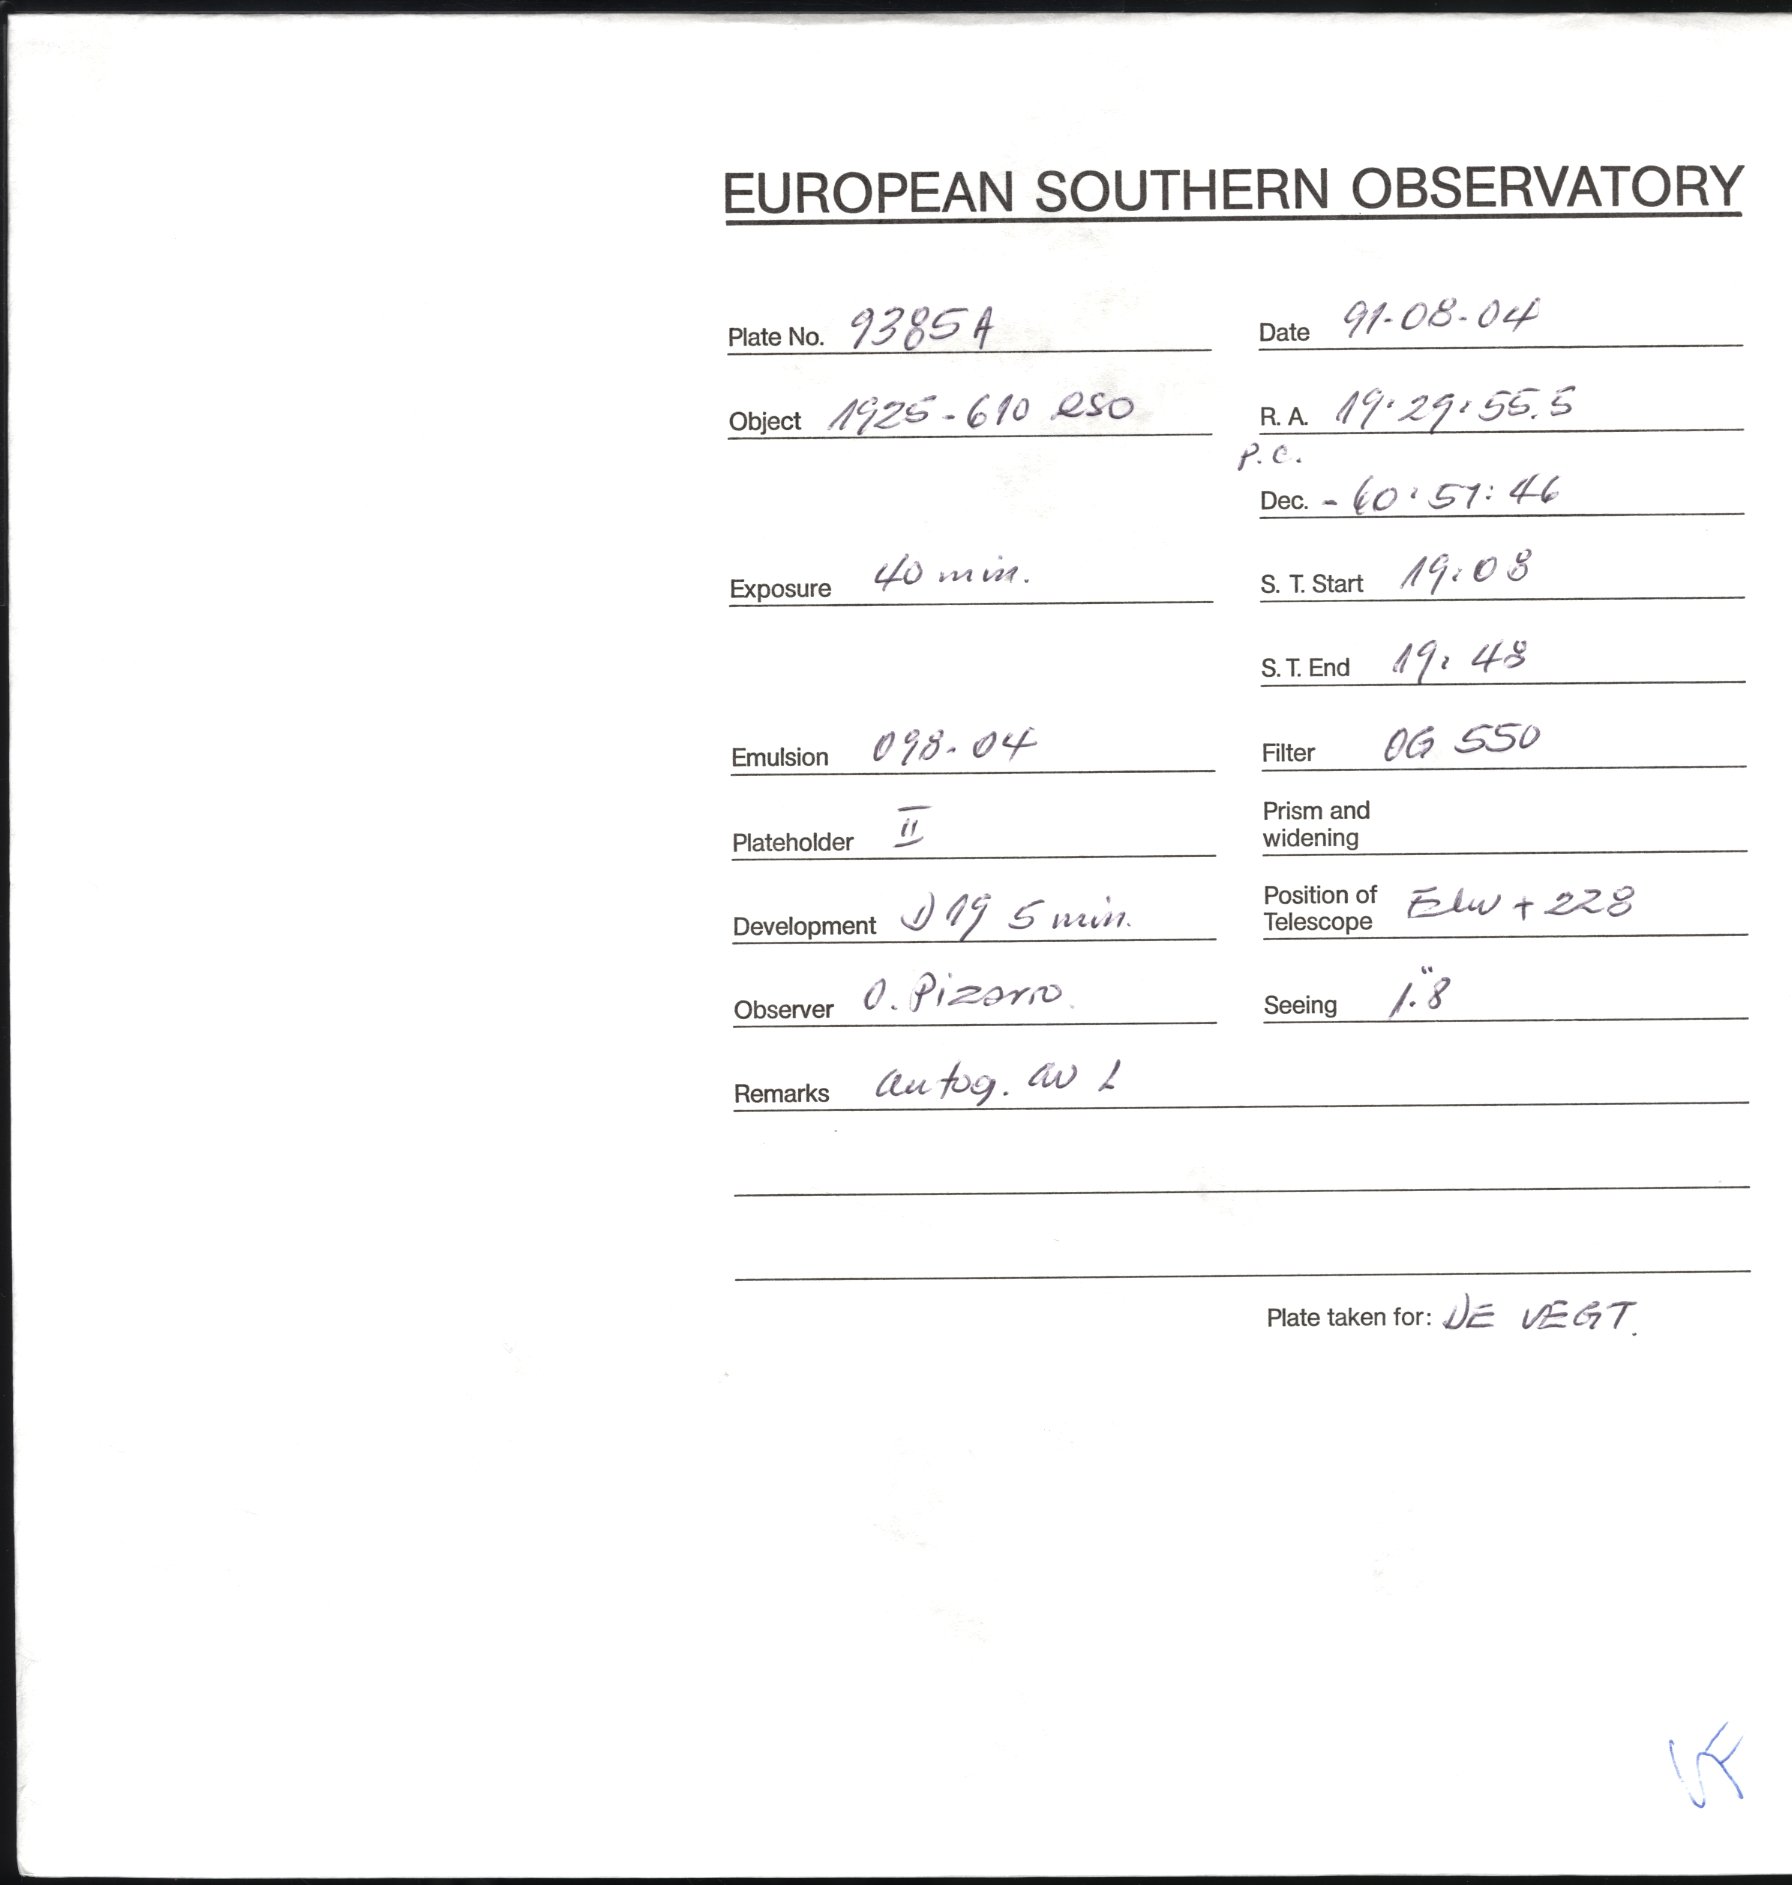 EUROPEAN SOUTHERN OBSERVATORY
Plate No. 9385A Date 91-08-04
Object 1925-610 eso R. A. 19:29:55.5
P.C.
Dec. -60:51:46
Exposure 40 min. S. T. Start 19:08
S. T. End 19:48
Emulsion 098-04 Filter OG 550
Plateholder II Prism and
widening
Development D19 5 min. Position of
Telescope + 228
Observer O. Pizarro. Seeing 1."8
Remarks autog. L
Plate taken for: DE VEGT.